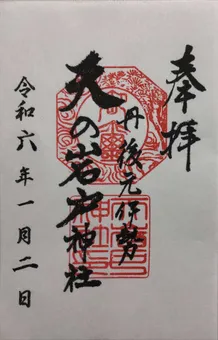 奉拝
丹後元伊勢
天の岩戸神社
令和六年一月二日